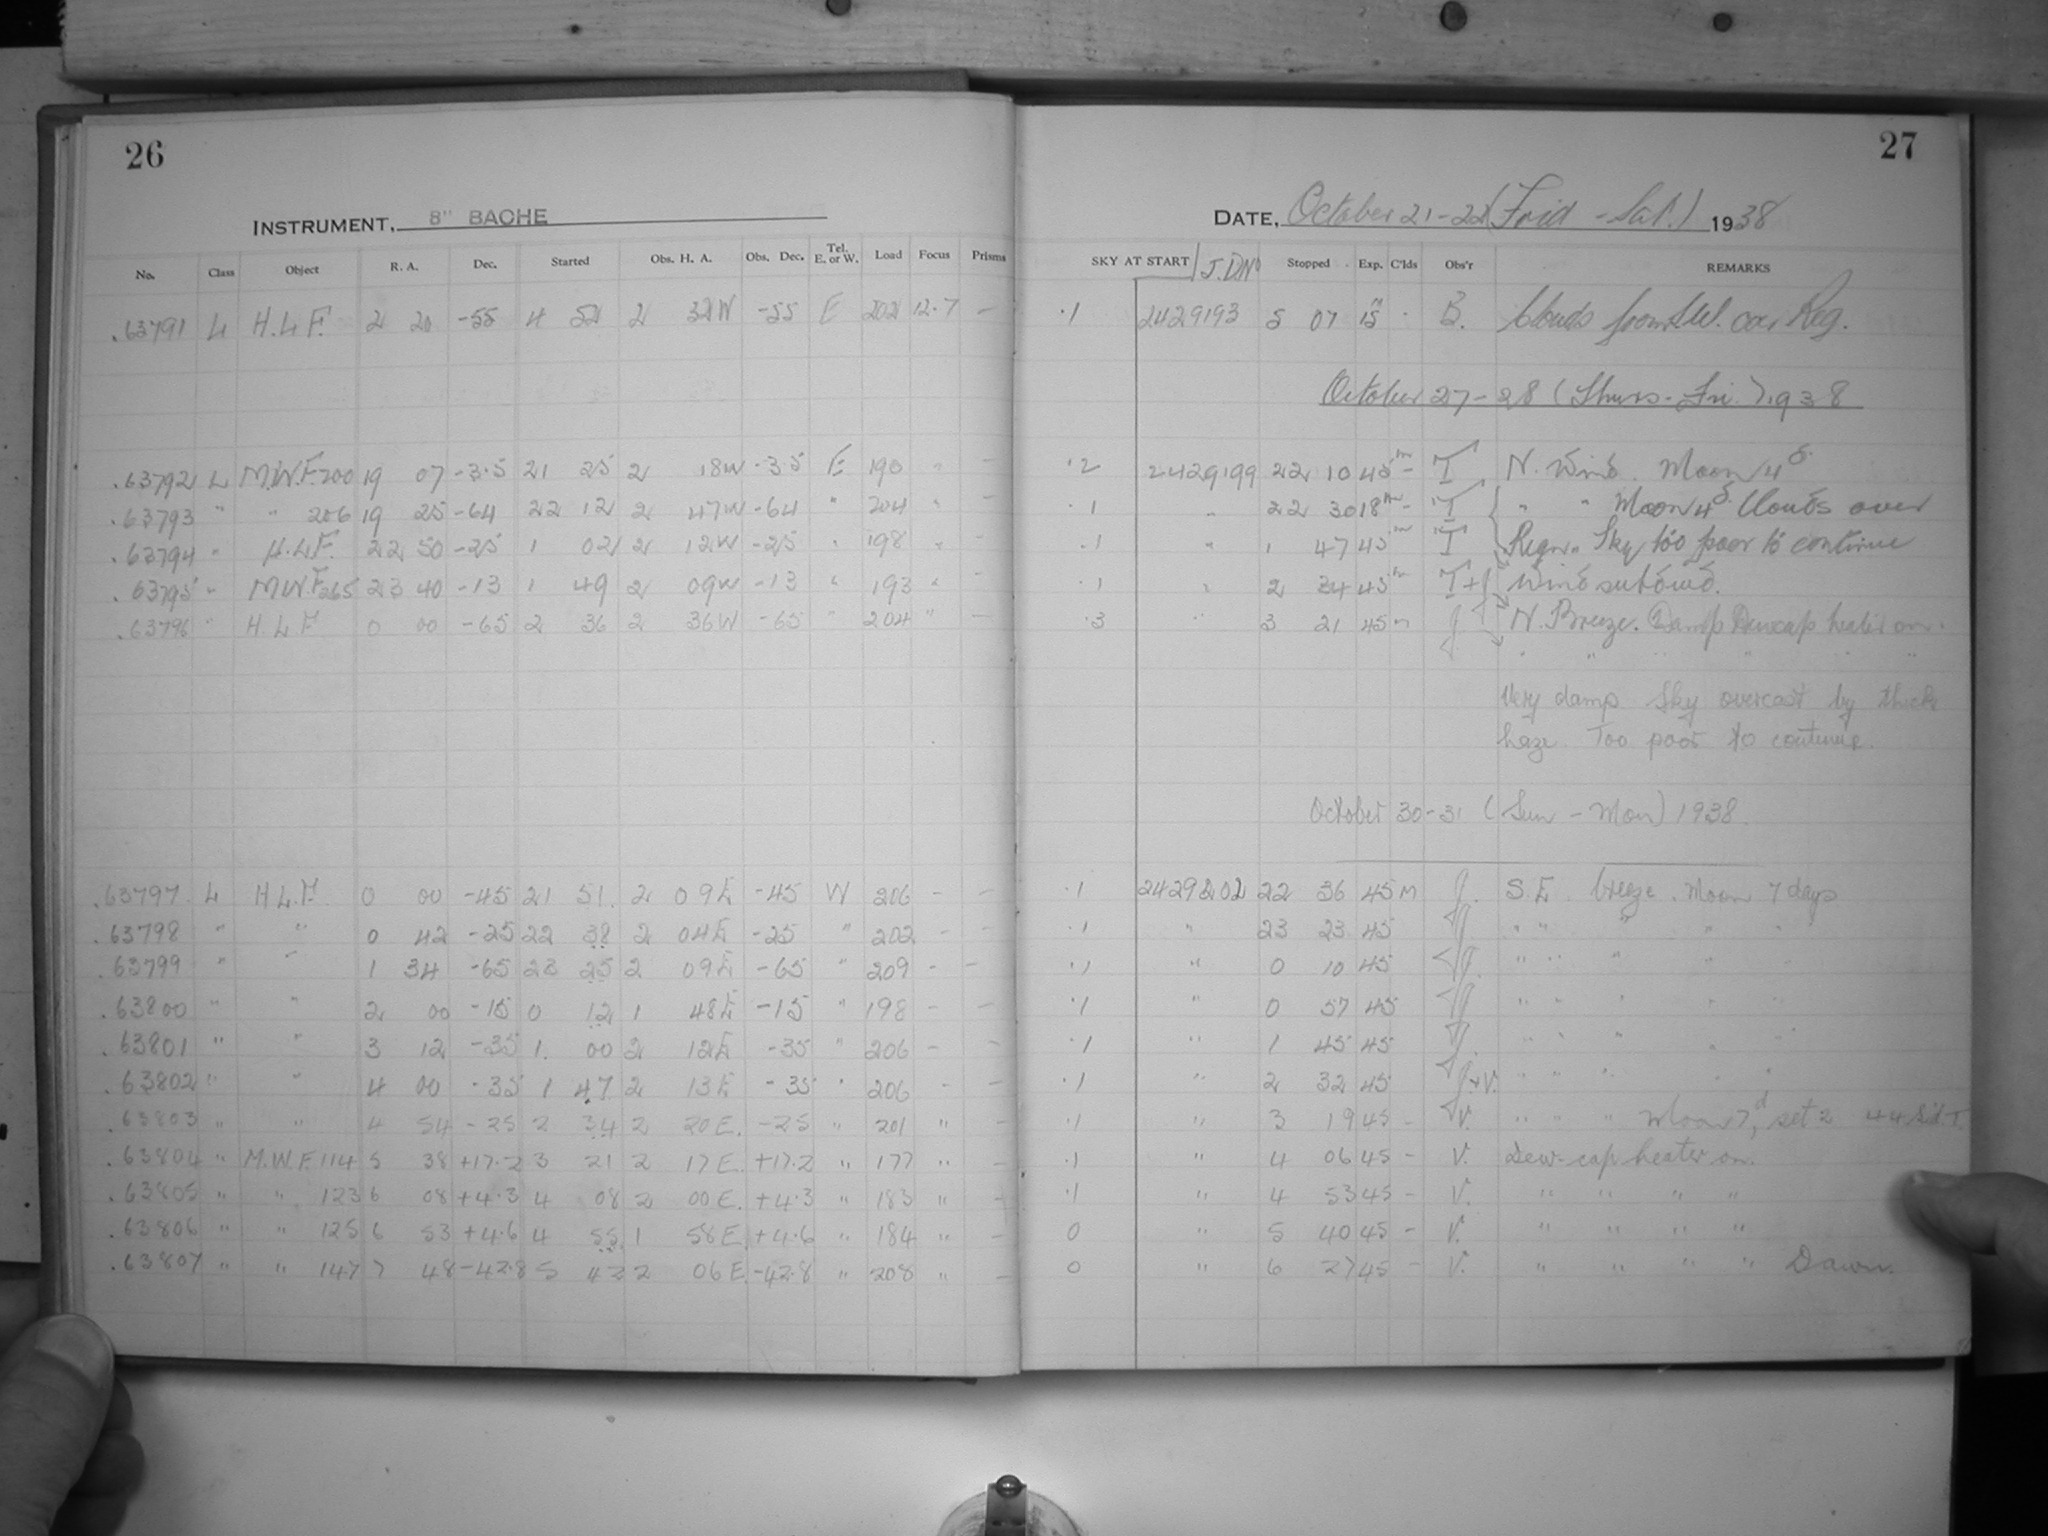 26
INSTRUMENT, 8" BACHE
No. Class Object R. A. Dec. Started Obs. H. A. Obs. Dec. Tel. E. or W. Load Focus Prisms
.63791 L H.L.F. 2 20 -55 4 52 2 32W -55 E 202 12.7 —
.63792 L M.W.F. 200 19 07 -3.5 21 25 2 18W -3.5 E 190 " —
.63793 " " 206 19 25 -64 22 12 2 47W -64 " 204 " —
.63794 " H.L.F. 22 50 -25 1 02 2 12W -25 " 198 " —
.63795 " M.W.F. 265 23 40 -13 1 49 2 09W -13 " 193 " —
.63796 " H.L.F 0 00 -65 2 36 2 36W -65 " 204 " —
.63797 L H.L.F. 0 00 -45 21 51. 2 09E -45 W 206 - —
.63798 " " 0 42 -25 22 38 2 04E -25 " 202 - —
.63799 " " 1 34 -65 23 25 2 09E -65 " 209 - —
.63800 " " 2 00 -15 0 12 1 48E -15 " 198 - —
.63801 " " 3 12 -35 1. 00 2 12E -35 " 206 - —
.63802 " " 4 00 -35 1 47 2 13E -35 " 206 —
.63803 " " 4 54 -25 2 34 2 20E. -25 " 201 " —
.63804 " M.W.F. 114 5 38 +17.2 3 21 2 17E. +17.2 " 177 " —
.63805 " " 123 6 08 +4.3 4 08 2 00E. +4.3 " 183 " —
.63806 " " 125 6 53 +4.6 4 55 1 58E. +4.6 " 184 " —
.63807 " " 147 7 48 -42.8 5 42 2 06E. -42.8 " 208 " —
27
DATE, October 21-22 (Frid - Sat.) 1938
SKY AT START J.D.No Stopped Exp. C'lds Obs'r REMARKS
.1 2429193 5 07 15 B. Clouds from S.W. over Reg.
October 27-28 (Thurs-Fri.) 1938
.2 2429199 22 10 45m - T N. Wind. Moon 4d.
.1 " 22 30 18m - T " " Moon 4d. Clouds over
.1 " 1 47 45m T Region Sky too poor to continue
.1 " 2 34 45m T+J Wind subdued.
.3 " 3 21 45m J N. Breeze. Damp Dewcap heater on.
" " " " " "
Very damp. Sky overcast by thick
haze. Too poor to continue.
October 30-31 (Sun - Mon) 1938.
.1 2429202 22 36 45m J. S.E. breeze. Moon 7 days
.1 " 23 23 45 J " " " " "
.1 " 0 10 45 J " " " " "
.1 " 0 57 45 J " " " " "
.1 " 1 45 45 J " " " " "
.1 " 2 32 45 J+V. " " " " "
.1 " 3 19 45 - V. " " " Moon 7d, set 2 44 Sid T.
.1 " 4 06 45 - V. Dew-cap heater on.
.1 " 4 53 45 - V. " " " "
0 " 5 40 45 - V. " " " "
0 " 6 27 45 - V. " " " " Dawn.